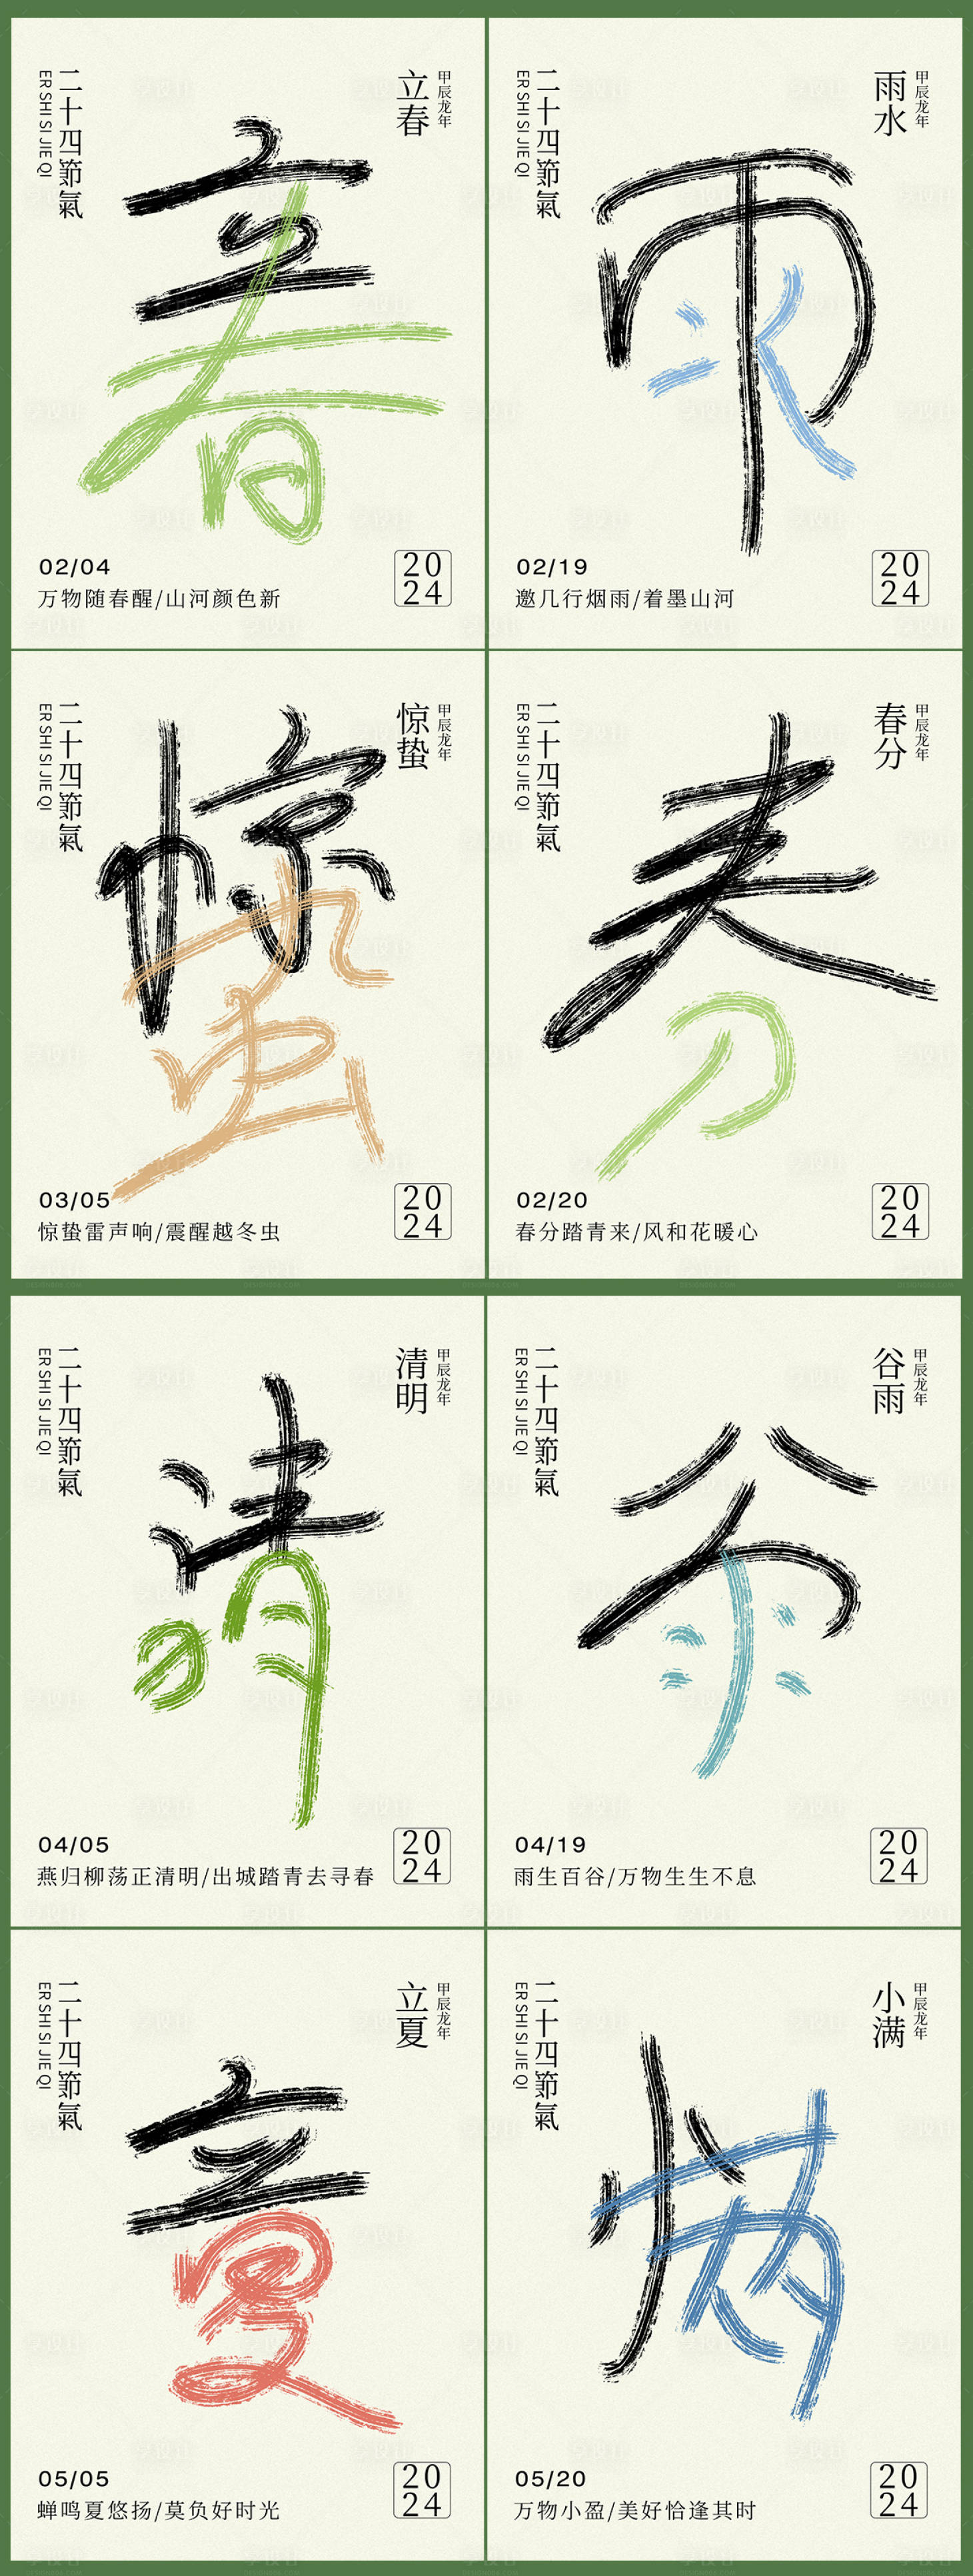 二十四節氣
ER SHI SI JIE QI
立春
甲辰龙年
春
02/04
万物随春醒/山河颜色新
20
24
二十四節氣
ER SHI SI JIE QI
雨水
甲辰龙年
雨水
02/19
邀几行烟雨/着墨山河
20
24
二十四節氣
ER SHI SI JIE QI
惊蛰
甲辰龙年
惊蛰
03/05
惊蛰雷声响/震醒越冬虫
20
24
二十四節氣
ER SHI SI JIE QI
春分
甲辰龙年
春分
02/20
春分踏青来/风和花暖心
20
24
二十四節氣
ER SHI SI JIE QI
清明
甲辰龙年
清明
04/05
燕归柳荡正清明/出城踏青去寻春
20
24
二十四節氣
ER SHI SI JIE QI
谷雨
甲辰龙年
谷雨
04/19
雨生百谷/万物生生不息
20
24
二十四節氣
ER SHI SI JIE QI
立夏
甲辰龙年
立夏
05/05
蝉鸣夏悠扬/莫负好时光
20
24
二十四節氣
ER SHI SI JIE QI
小满
甲辰龙年
小满
05/20
万物小盈/美好恰逢其时
20
24